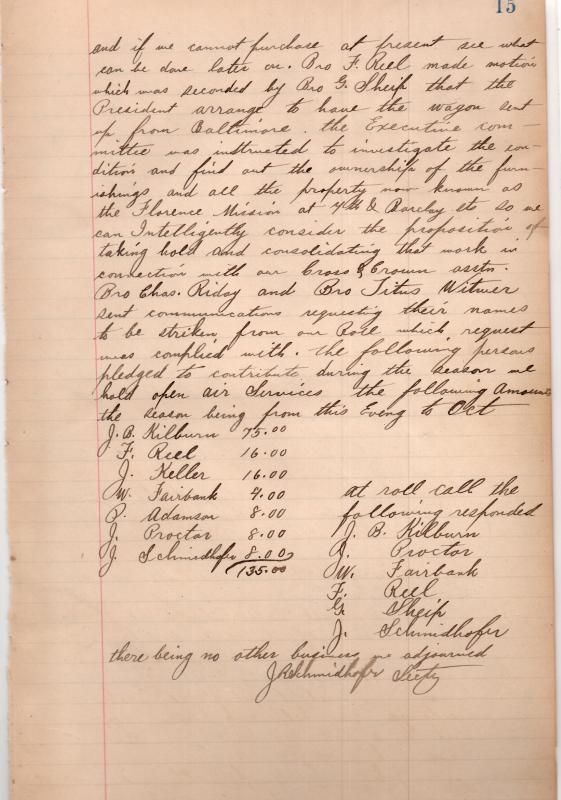 15
and if we cannot purchase at present see what
can be done later on. Bro F. Reel made motion
which was seconded by Bro G. Sheip that the
President arrange to have the wagon sent
up from Baltimore. the Executive com-
mittee was instructed to investigate the con-
dition and find out the ownership of the furn-
ishings and all the property now known as
the Florence Mission at 4th & Barclay sts so we
can Intelligently consider the proposition of
taking hold and consolidating that work in
connection with our Cross & Crown asstn.
Bro Chas. Riday and Bro Titus Witmer
sent communications requesting their names
to be striken from our Roll which request
was complied with. the following persons
pledged to contribute during the season we
hold open air Services the following Amounts
the season being from this Eveng to Oct
J. B. Kilburn 75.00
F. Reel 16.00
J. Keller 16.00
W. Fairbank 4.00
P. Adamson 8.00
J. Proctor 8.00
J. Schmidhofer 8.00
135.00
at roll call the
following responded
J. B. Kilburn
J. Proctor
W. Fairbank
F. Reel
G. Sheip
J. Schmidhofer
there being no other business we adjourned
J Schmidhofer Secty